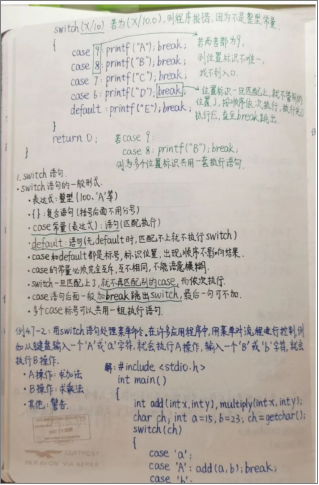 switch(x/10) 若为(x/10.0),则程序报错,因为不是整型常量
{
case 9: printf("A"); break; 若两者都为9,
case 8: printf("B"); break; 则位置标识不唯一,
case 7: printf("C"); break; 找不到入口
case 6: printf("D"); break; 位置标识一旦匹配上,就不管别的
default: printf("E"); break; 位置了,按顺序依次执行,
} 直至break跳出
return 0; 若case 9
} case 8: printf("B"); break;
则为多个位置标识共用一套执行语句
1. switch语句
·switch语句的一般形式
·表达式:整型(100、'A'等)
·{ }:复合语句(括号后面不用分号)
·case 常量(表达式):语句(匹配执行)
·default:语句(无default时,匹配不上就不执行switch)
·case和default都是标号,标识位置,出现顺序不影响结果
·case的常量必须完全互异,互不相同,不能语意模糊
·switch一旦匹配上了,就不再匹配别的case,而依次执行
·case语句后面一般加break跳出switch,最后一句可不加
·多个case标号可以共用一组执行语句
例4.7-2:用switch语句处理菜单命令。在许多应用程序中,用菜单对流程进行控制,例
如从键盘输入一个'A'或'a'字符,就会执行A操作,输入一个'B'或'b'字符,就会
执行B操作
·A操作:求加法 解:#include <stdio.h>
·B操作:求乘法 int main()
·其他:警告 {
int add(int x,int y),multiply(int x,int y);
char ch; int a=15, b=23; ch=getchar();
switch(ch)
{
case 'a':
case 'A': add(a,b); break;
case 'b':